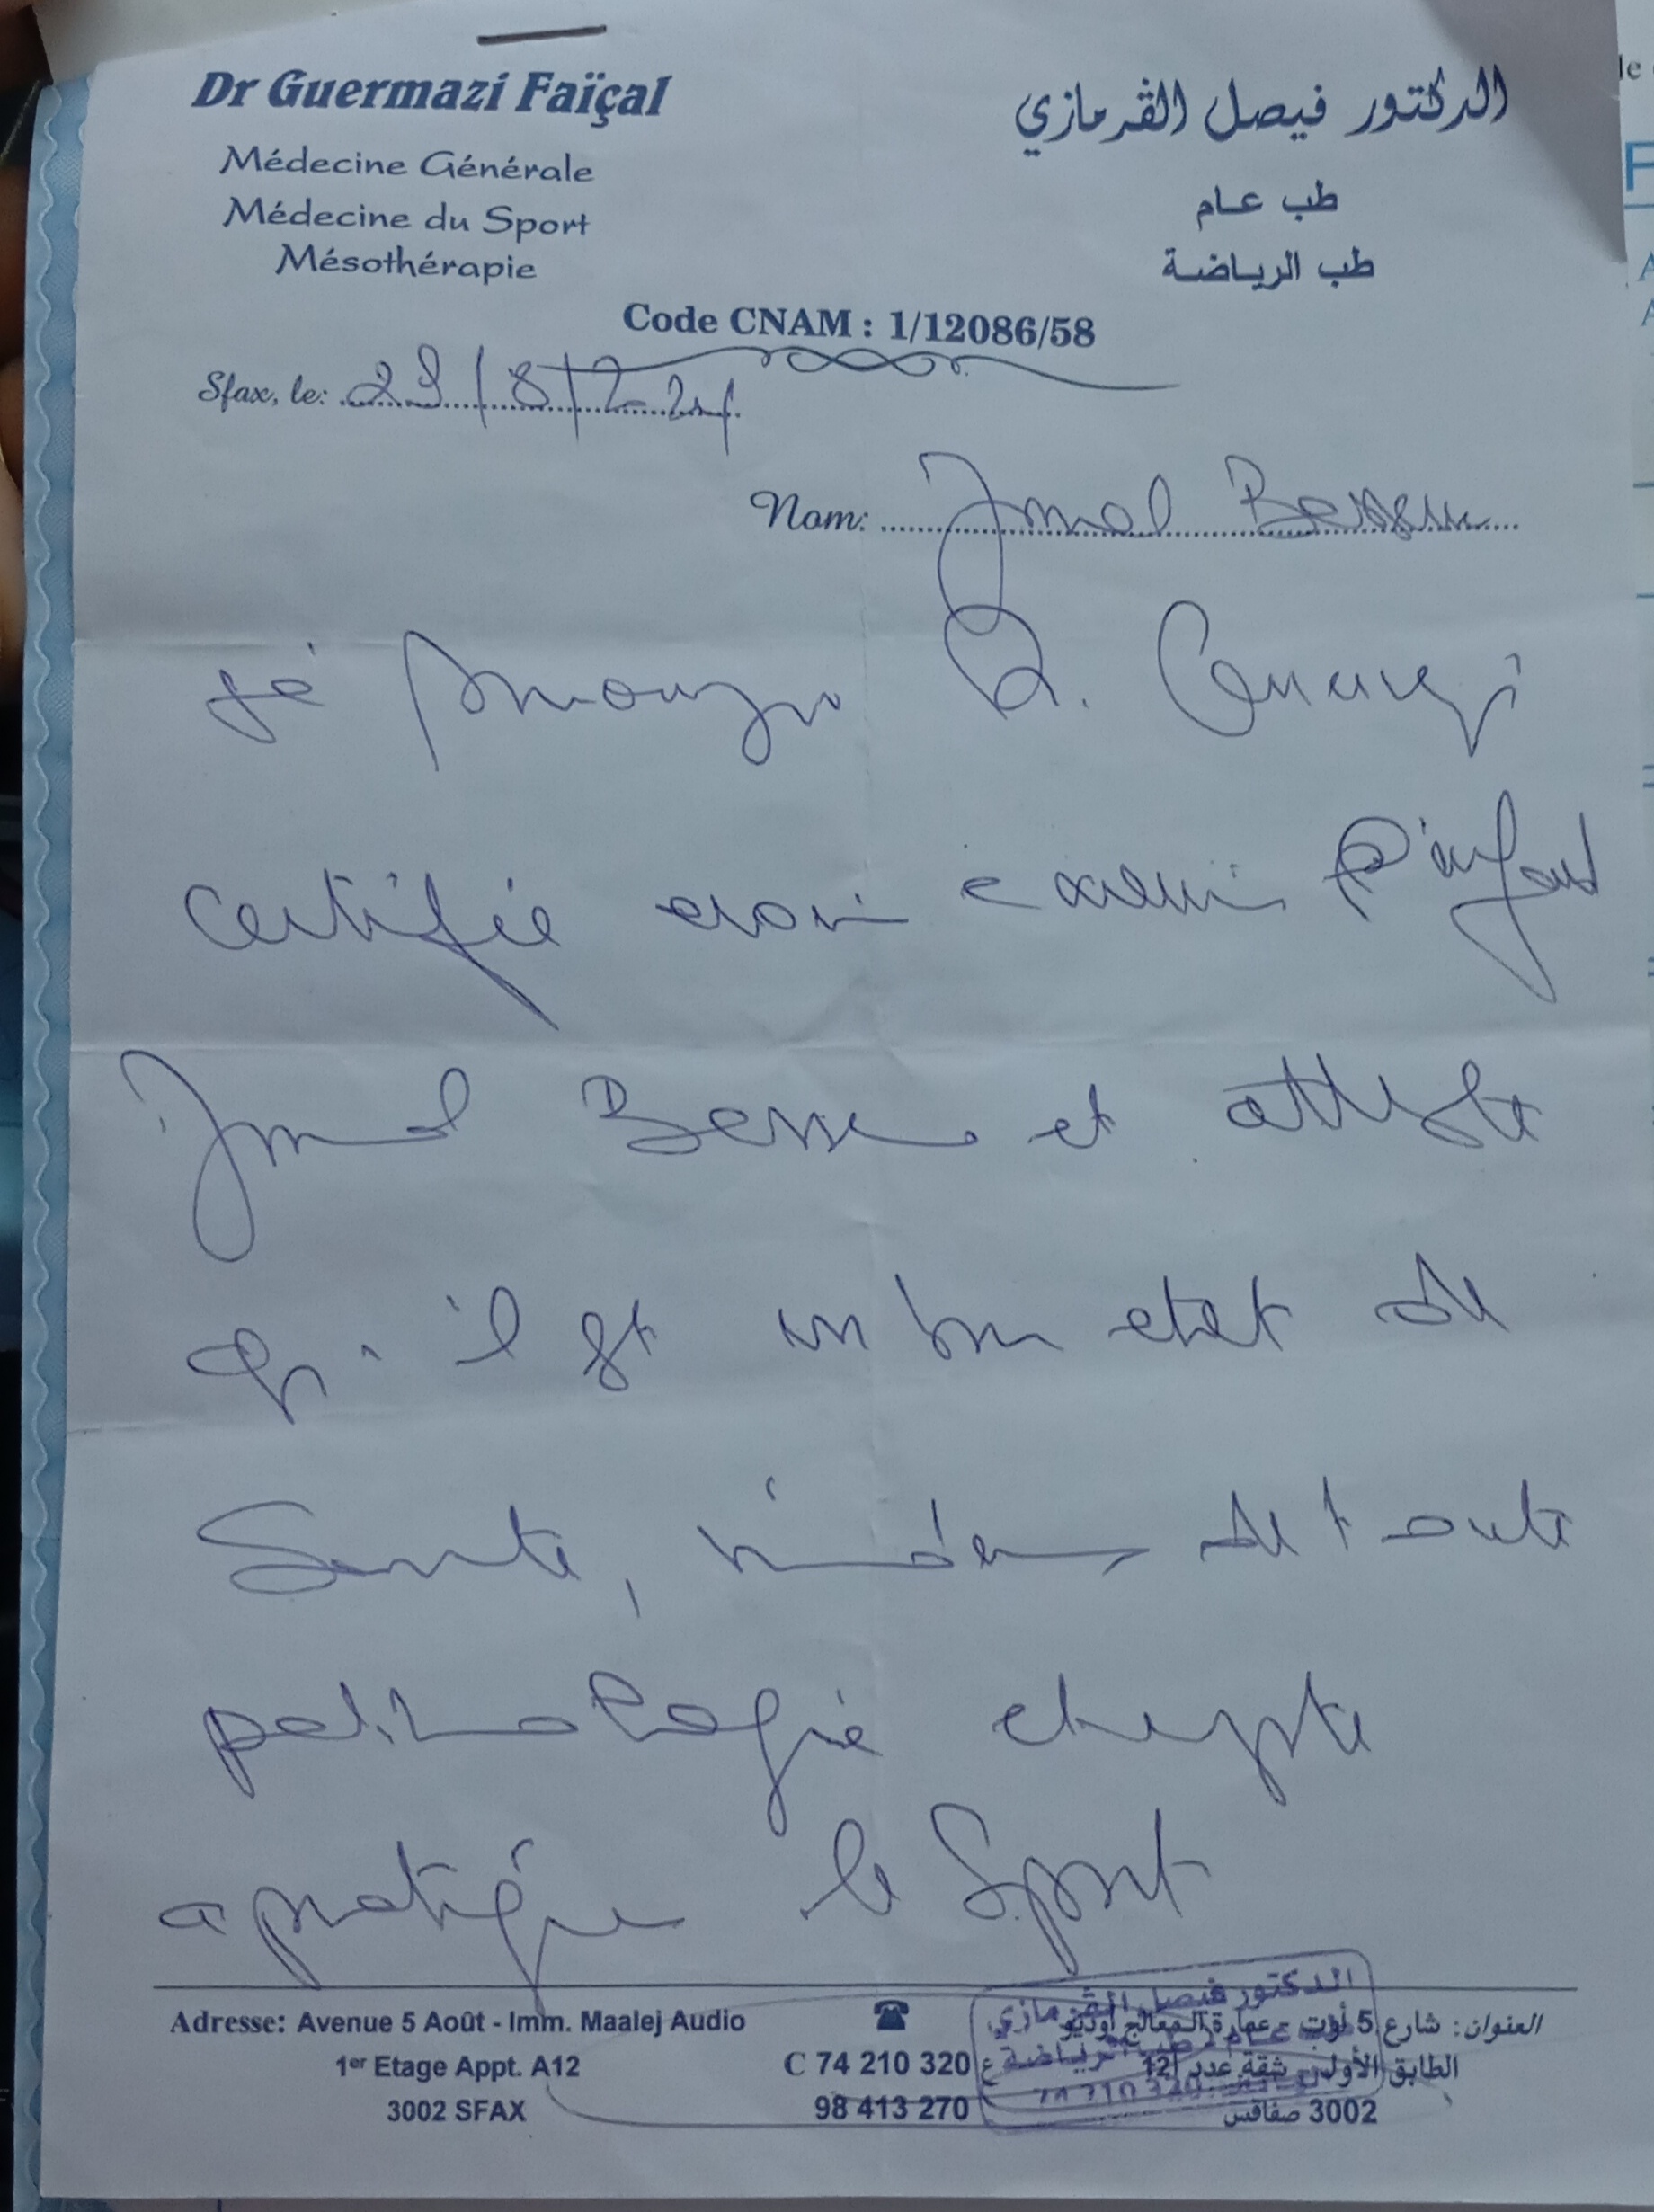 Dr Guermazi Faïçal
Médecine Générale
Médecine du Sport
Mésothérapie
الدكتور فيصل الڤرمازي
طب عام
طب الرياضة
Code CNAM : 1/12086/58
Sfax, le: 29/8/2024
Nom: Jmal
je Dr.
certifie avoir examiné l'enfant
Jmal et atteste
qu'il est en bon etat de
Santé, indemne de toute
pathologie et apte
a pratiquer le Sport
Adresse: Avenue 5 Août - Imm. Maalej Audio
1er Etage Appt. A12
3002 SFAX
C 74 210 320 ع
98 413 270
العنوان: شارع 5 أوت - عمارة المعالج أوديو
الطابق الأول شقة عدد 12
3002 صفاقس
الدكتور فيصل الڤرمازي
74 210 320